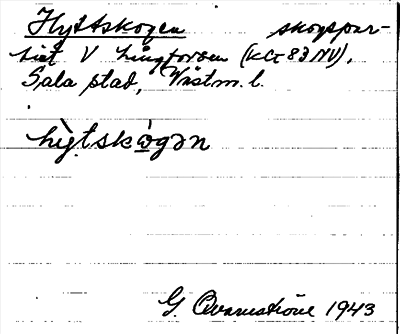 Hyttskogen skogspar-
tiet V Långforsen (KG 83 NV),
Sala stad, Västm. l.
hỳtskògən
G. Qvarnström 1943